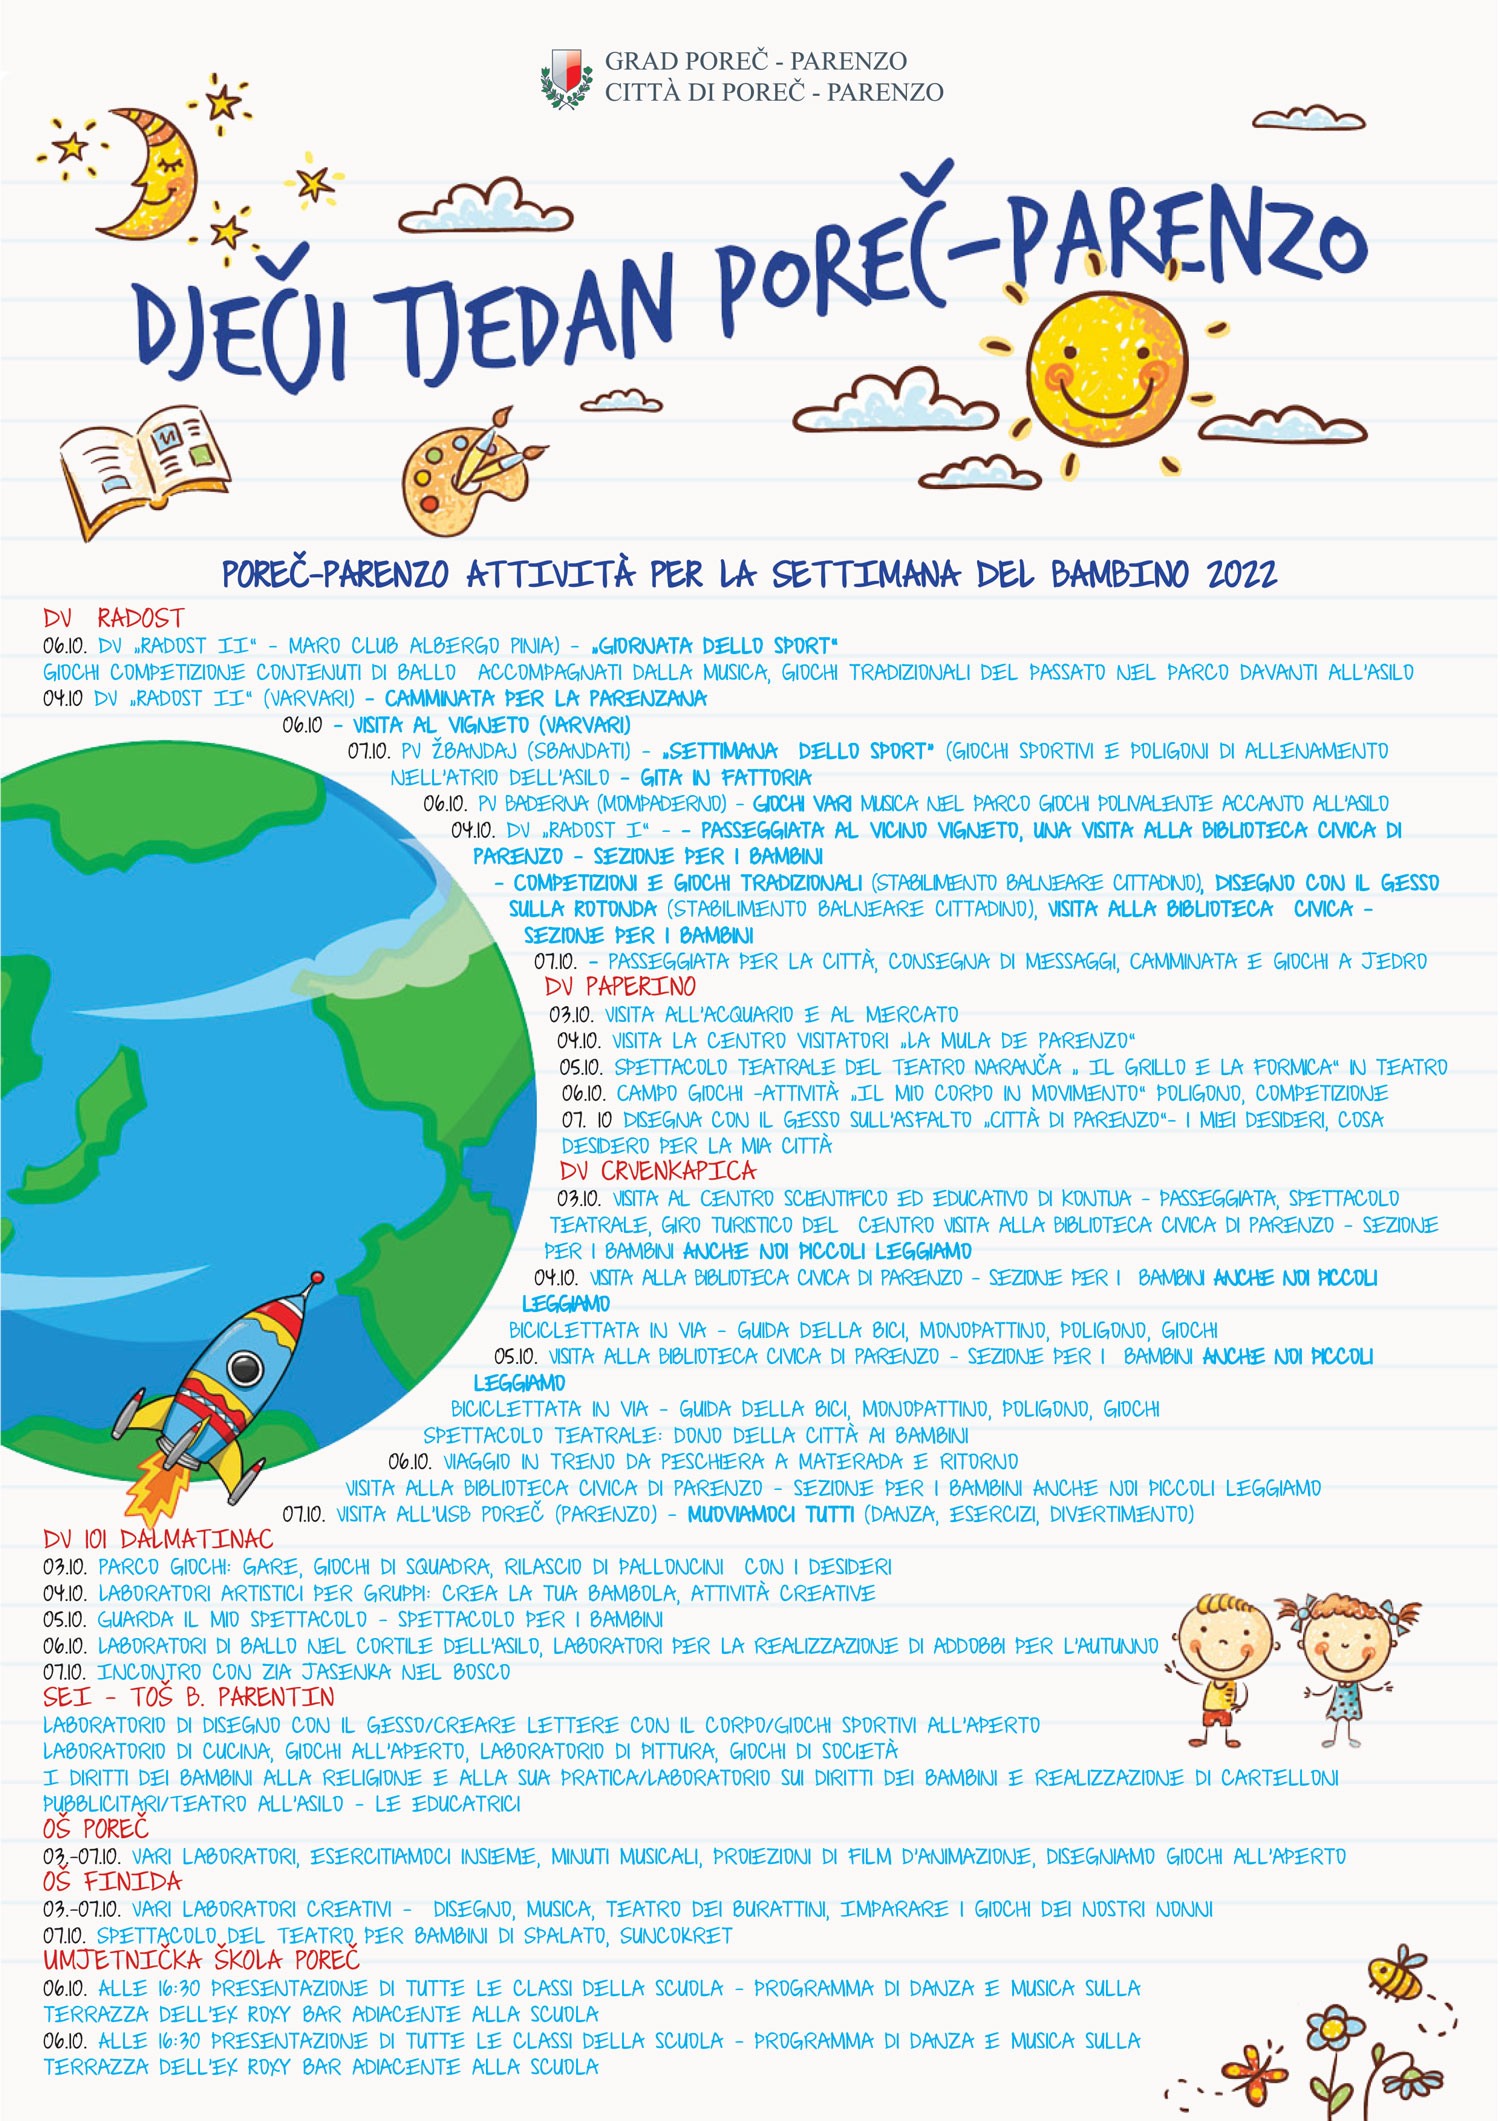 GRAD POREČ - PARENZO
CITTÀ DI POREČ - PARENZO
DJEČJI TJEDAN POREČ-PARENZO
POREČ-PARENZO ATTIVITÀ PER LA SETTIMANA DEL BAMBINO 2022
DV RADOST
06.10. DV „RADOST II“ - MARO CLUB ALBERGO PINIA) - „GIORNATA DELLO SPORT“
GIOCHI COMPETIZIONE CONTENUTI DI BALLO ACCOMPAGNATI DALLA MUSICA, GIOCHI TRADIZIONALI DEL PASSATO NEL PARCO DAVANTI ALL'ASILO
04.10 DV „RADOST II“ (VARVARI) - CAMMINATA PER LA PARENZANA
06.10 - VISITA AL VIGNETO (VARVARI)
07.10. PV ŽBANDAJ (SBANDATI) - „SETTIMANA DELLO SPORT“ (GIOCHI SPORTIVI E POLIGONI DI ALLENAMENTO
NELL'ATRIO DELL'ASILO - GITA IN FATTORIA
06.10. PV BADERNA (MOMPADERNO) - GIOCHI VARI MUSICA NEL PARCO GIOCHI POLIVALENTE ACCANTO ALL'ASILO
04.10. DV „RADOST I“ - - PASSEGGIATA AL VICINO VIGNETO, UNA VISITA ALLA BIBLIOTECA CIVICA DI
PARENZO - SEZIONE PER I BAMBINI
- COMPETIZIONI E GIOCHI TRADIZIONALI (STABILIMENTO BALNEARE CITTADINO), DISEGNO CON IL GESSO
SULLA ROTONDA (STABILIMENTO BALNEARE CITTADINO), VISITA ALLA BIBLIOTECA CIVICA -
SEZIONE PER I BAMBINI
07.10. - PASSEGGIATA PER LA CITTÀ, CONSEGNA DI MESSAGGI, CAMMINATA E GIOCHI A JEDRO
DV PAPERINO
03.10. VISITA ALL'ACQUARIO E AL MERCATO
04.10. VISITA LA CENTRO VISITATORI „LA MULA DE PARENZO“
05.10. SPETTACOLO TEATRALE DEL TEATRO NARANČA „ IL GRILLO E LA FORMICA“ IN TEATRO
06.10. CAMPO GIOCHI -ATTIVITÀ „IL MIO CORPO IN MOVIMENTO“ POLIGONO, COMPETIZIONE
07. 10 DISEGNA CON IL GESSO SULL'ASFALTO „CITTÀ DI PARENZO“- I MIEI DESIDERI, COSA
DESIDERO PER LA MIA CITTÀ
DV CRVENKAPICA
03.10. VISITA AL CENTRO SCIENTIFICO ED EDUCATIVO DI KONTIJA - PASSEGGIATA, SPETTACOLO
TEATRALE, GIRO TURISTICO DEL CENTRO VISITA ALLA BIBLIOTECA CIVICA DI PARENZO - SEZIONE
PER I BAMBINI ANCHE NOI PICCOLI LEGGIAMO
04.10. VISITA ALLA BIBLIOTECA CIVICA DI PARENZO - SEZIONE PER I BAMBINI ANCHE NOI PICCOLI
LEGGIAMO
BICICLETTATA IN VIA - GUIDA DELLA BICI, MONOPATTINO, POLIGONO, GIOCHI
05.10. VISITA ALLA BIBLIOTECA CIVICA DI PARENZO - SEZIONE PER I BAMBINI ANCHE NOI PICCOLI
LEGGIAMO
BICICLETTATA IN VIA - GUIDA DELLA BICI, MONOPATTINO, POLIGONO, GIOCHI
SPETTACOLO TEATRALE: DONO DELLA CITTÀ AI BAMBINI
06.10. VIAGGIO IN TRENO DA PESCHIERA A MATERADA E RITORNO
VISITA ALLA BIBLIOTECA CIVICA DI PARENZO - SEZIONE PER I BAMBINI ANCHE NOI PICCOLI LEGGIAMO
07.10. VISITA ALL'USB POREČ (PARENZO) - MUOVIAMOCI TUTTI (DANZA, ESERCIZI, DIVERTIMENTO)
DV 101 DALMATINAC
03.10. PARCO GIOCHI: GARE, GIOCHI DI SQUADRA, RILASCIO DI PALLONCINI CON I DESIDERI
04.10. LABORATORI ARTISTICI PER GRUPPI: CREA LA TUA BAMBOLA, ATTIVITÀ CREATIVE
05.10. GUARDA IL MIO SPETTACOLO - SPETTACOLO PER I BAMBINI
06.10. LABORATORI DI BALLO NEL CORTILE DELL'ASILO, LABORATORI PER LA REALIZZAZIONE DI ADDOBBI PER L'AUTUNNO
07.10. INCONTRO CON ZIA JASENKA NEL BOSCO
SEI - TOŠ B. PARENTIN
LABORATORIO DI DISEGNO CON IL GESSO/CREARE LETTERE CON IL CORPO/GIOCHI SPORTIVI ALL'APERTO
LABORATORIO DI CUCINA, GIOCHI ALL'APERTO, LABORATORIO DI PITTURA, GIOCHI DI SOCIETÀ
I DIRITTI DEI BAMBINI ALLA RELIGIONE E ALLA SUA PRATICA/LABORATORIO SUI DIRITTI DEI BAMBINI E REALIZZAZIONE DI CARTELLONI
PUBBLICITARI/TEATRO ALL'ASILO - LE EDUCATRICI
OŠ POREČ
03.-07.10. VARI LABORATORI, ESERCITIAMOCI INSIEME, MINUTI MUSICALI, PROIEZIONI DI FILM D'ANIMAZIONE, DISEGNIAMO GIOCHI ALL'APERTO
OŠ FINIDA
03.-07.10. VARI LABORATORI CREATIVI - DISEGNO, MUSICA, TEATRO DEI BURATTINI, IMPARARE I GIOCHI DEI NOSTRI NONNI
07.10. SPETTACOLO DEL TEATRO PER BAMBINI DI SPALATO, SUNCOKRET
UMJETNIČKA ŠKOLA POREČ
06.10. ALLE 16:30 PRESENTAZIONE DI TUTTE LE CLASSI DELLA SCUOLA - PROGRAMMA DI DANZA E MUSICA SULLA
TERRAZZA DELL'EX ROXY BAR ADIACENTE ALLA SCUOLA
06.10. ALLE 16:30 PRESENTAZIONE DI TUTTE LE CLASSI DELLA SCUOLA - PROGRAMMA DI DANZA E MUSICA SULLA
TERRAZZA DELL'EX ROXY BAR ADIACENTE ALLA SCUOLA